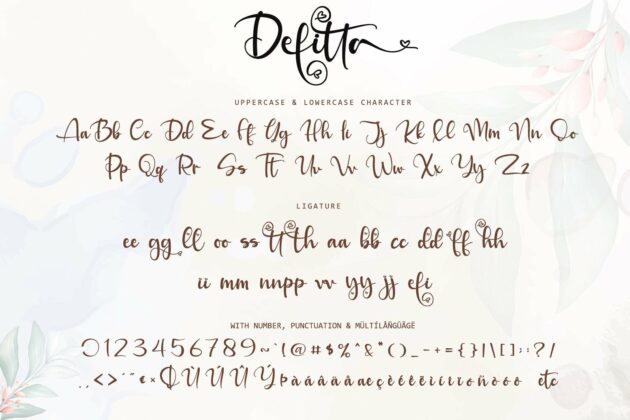 Defitta
UPPERCASE & LOWERCASE CHARACTER
Aa Bb Cc Dd Ee Ff Gg Hh Ii Jj Kk Ll Mm Nn Oo
Pp Qq Rr Ss Tt Uu Vv Ww Xx Yy Zz
LIGATURE
ee gg ll oo ss tt th aa bb cc dd ff hh
ii mm nn pp vv yy jj efi
WITH NUMBER, PUNCTUATION & MÜLTÍLÂÑGÜÃGË
0123456789~`!@#$%^&*()_-+={}|\[]:;?/
.,<>
etc